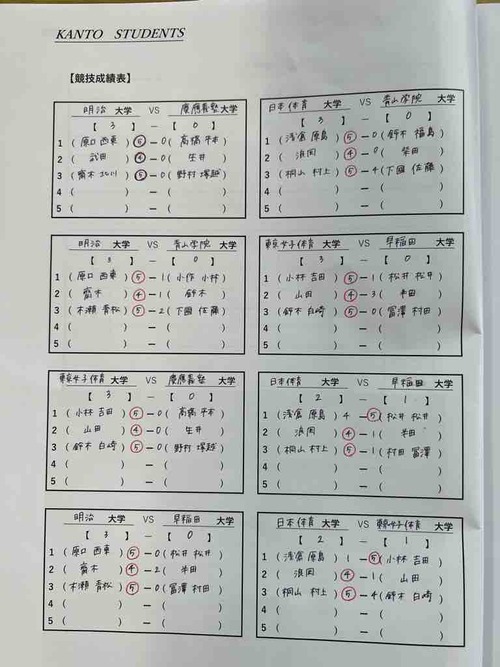 KANTO STUDENTS
【競技成績表】
明治 大学 VS 慶應義塾 大学
【 3 】 － 【 0 】
1 ( 原口 西東 ) ⑤－0 ( 高橋 平本 )
2 ( 武田 ) ④－0 ( 生井 )
3 ( 齋木 北川 ) ⑤－0 ( 野村 塚越 )
4 ( ) － ( )
5 ( ) － ( )
日本体育 大学 VS 青山学院 大学
【 3 】 － 【 0 】
1 ( 浅倉 原島 ) ⑤－0 ( 鈴木 福島 )
2 ( 浜岡 ) ④－0 ( 柴田 )
3 ( 桐山 村上 ) ⑤－4 ( 下國 佐藤 )
4 ( ) － ( )
5 ( ) － ( )
明治 大学 VS 青山学院 大学
【 3 】 － 【 0 】
1 ( 原口 西東 ) ⑤－1 ( 小作 小林 )
2 ( 齋木 ) ④－1 ( 鈴木 )
3 ( 木瀬 青松 ) ⑤－2 ( 下國 佐藤 )
4 ( ) － ( )
5 ( ) － ( )
東京女子体育 大学 VS 早稲田 大学
【 3 】 － 【 0 】
1 ( 小林 吉田 ) ⑤－1 ( 松井 松井 )
2 ( 山田 ) ④－3 ( 半田 )
3 ( 鈴木 白崎 ) ⑤－0 ( 冨澤 村田 )
4 ( ) － ( )
5 ( ) － ( )
東京女子体育 大学 VS 慶應義塾 大学
【 3 】 － 【 0 】
1 ( 小林 吉田 ) ⑤－0 ( 高橋 平本 )
2 ( 山田 ) ④－0 ( 生井 )
3 ( 鈴木 白崎 ) ⑤－0 ( 野村 塚越 )
4 ( ) － ( )
5 ( ) － ( )
日本体育 大学 VS 早稲田 大学
【 2 】 － 【 1 】
1 ( 浅倉 原島 ) 4－⑤ ( 松井 松井 )
2 ( 浜岡 ) ④－1 ( 半田 )
3 ( 桐山 村上 ) ⑤－1 ( 村田 冨澤 )
4 ( ) － ( )
5 ( ) － ( )
明治 大学 VS 早稲田 大学
【 3 】 － 【 0 】
1 ( 原口 西東 ) ⑤－0 ( 松井 松井 )
2 ( 齋木 ) ④－2 ( 半田 )
3 ( 木瀬 青松 ) ⑤－0 ( 冨澤 村田 )
4 ( ) － ( )
5 ( ) － ( )
日本体育 大学 VS 東京女子体育 大学
【 2 】 － 【 1 】
1 ( 浅倉 原島 ) 1－⑤ ( 小林 吉田 )
2 ( 浜岡 ) ④－1 ( 山田 )
3 ( 桐山 村上 ) ⑤－4 ( 鈴木 白崎 )
4 ( ) － ( )
5 ( ) － ( )